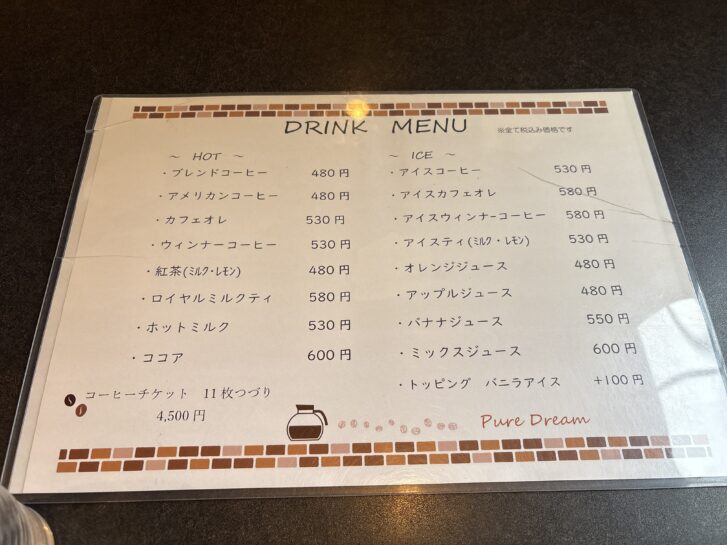 DRINK MENU
※全て税込み価格です
～ HOT ～
・ブレンドコーヒー 480円
・アメリカンコーヒー 480円
・カフェオレ 530円
・ウィンナーコーヒー 530円
・紅茶(ﾐﾙｸ・ﾚﾓﾝ) 480円
・ロイヤルミルクティ 580円
・ホットミルク 530円
・ココア 600円
コーヒーチケット 11枚つづり
4,500円
～ ICE ～
・アイスコーヒー 530円
・アイスカフェオレ 580円
・アイスウィンナーコーヒー 580円
・アイスティ(ﾐﾙｸ・ﾚﾓﾝ) 530円
・オレンジジュース 480円
・アップルジュース 480円
・バナナジュース 550円
・ミックスジュース 600円
・トッピング バニラアイス +100円
Pure Dream